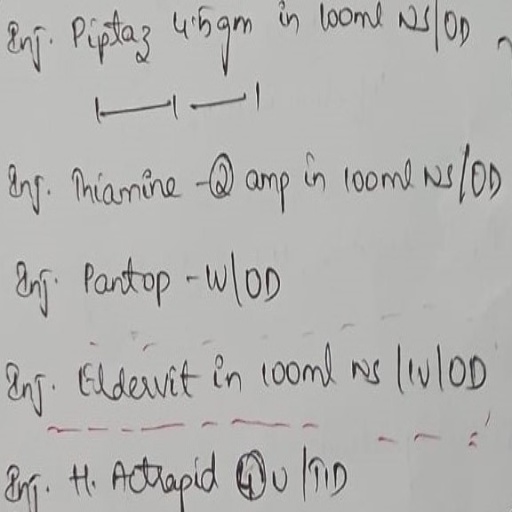 Inj. Piptaz 4.5gm in 100ml NS/OD
1—1—1
Inj. Thiamine - ② amp in 100ml NS/OD
Inj. Pantop - IV/OD
Inj. Eldervit in 100ml NS/IV/OD
Inj. H. Actrapid ④U/TID